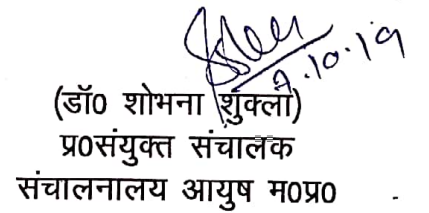 7.10.19
(डॉ0 शोभना शुक्ला)
प्र0संयुक्त संचालक
संचालनालय आयुष म0प्र0